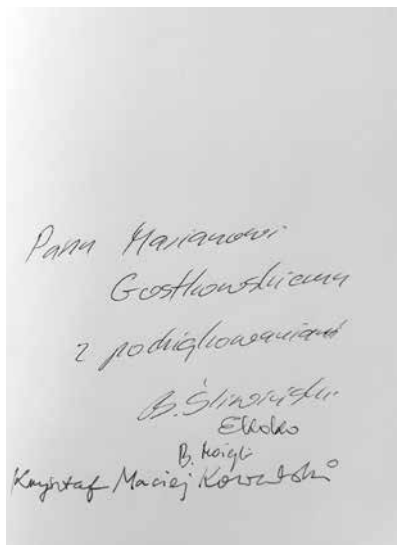 Panu Marianowi
Gostkowskiemu
z podziękowaniami
B. Śliwiński
B.
Krzysztof Maciej Kowalski